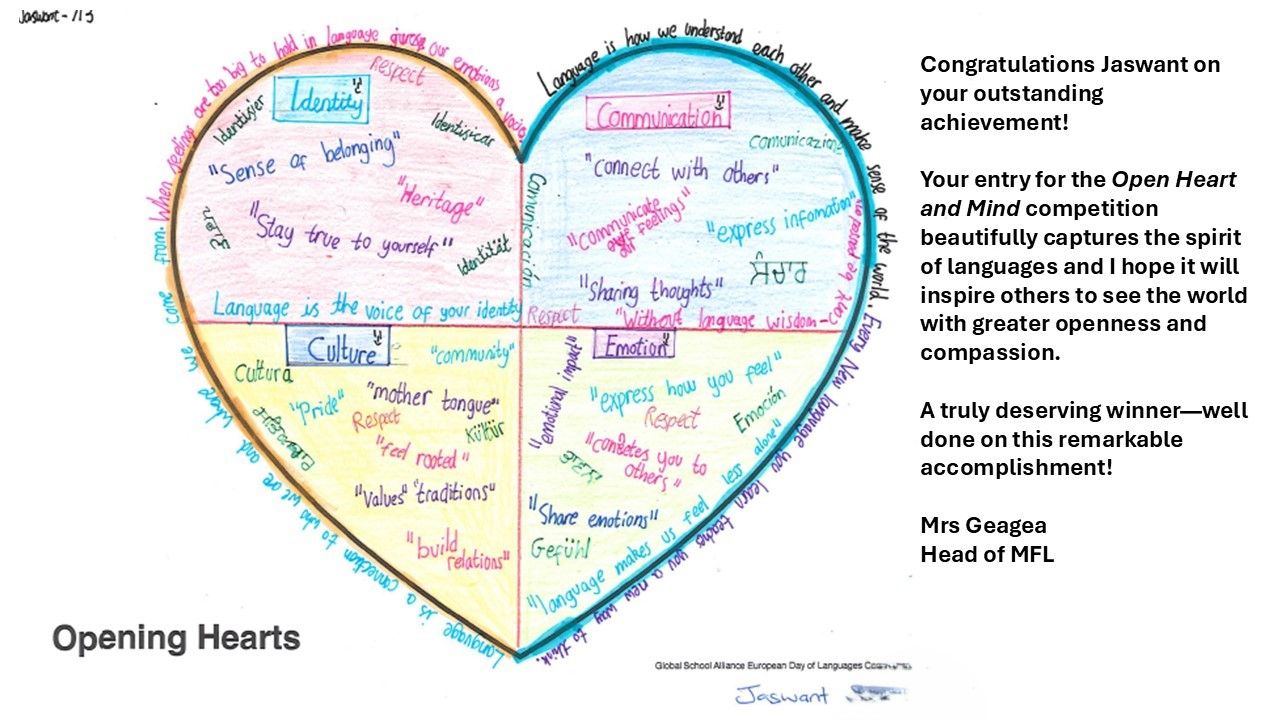 Jaswant - 11J
Language is a connection to who we are and where we come from. When feelings are too big to hold in language gives our emotions a voice.
Language is how we understand each other and make sense of the world. Every New language you learn teaches you a new way to think.
Identity
Respect
Identisicar
"Sense of belonging"
"Heritage"
"Stay true to yourself"
Identität
Language is the voice of your identity
Communication
Comunicazione
"connect with others"
Comunicación
"communicate
our feelings"
"express infomation"
ਸੰਚਾਰ
"Sharing thoughts"
Respect
"Without language wisdom
Culture
"community"
Cultura
"mother tongue"
"Pride"
Respect
Kültür
"feel rooted"
"Values" "traditions"
"build
relations"
Emotion
"emotional impact"
"express how you feel"
Respect
Emoción
you to
others"
"Share emotions"
Gefühl
"language makes us feel less alone"
Opening Hearts
Global School Alliance European Day of Languages
Jaswant
Congratulations Jaswant on
your outstanding
achievement!
Your entry for the Open Heart
and Mind competition
beautifully captures the spirit
of languages and I hope it will
inspire others to see the world
with greater openness and
compassion.
A truly deserving winner—well
done on this remarkable
accomplishment!
Mrs Geagea
Head of MFL